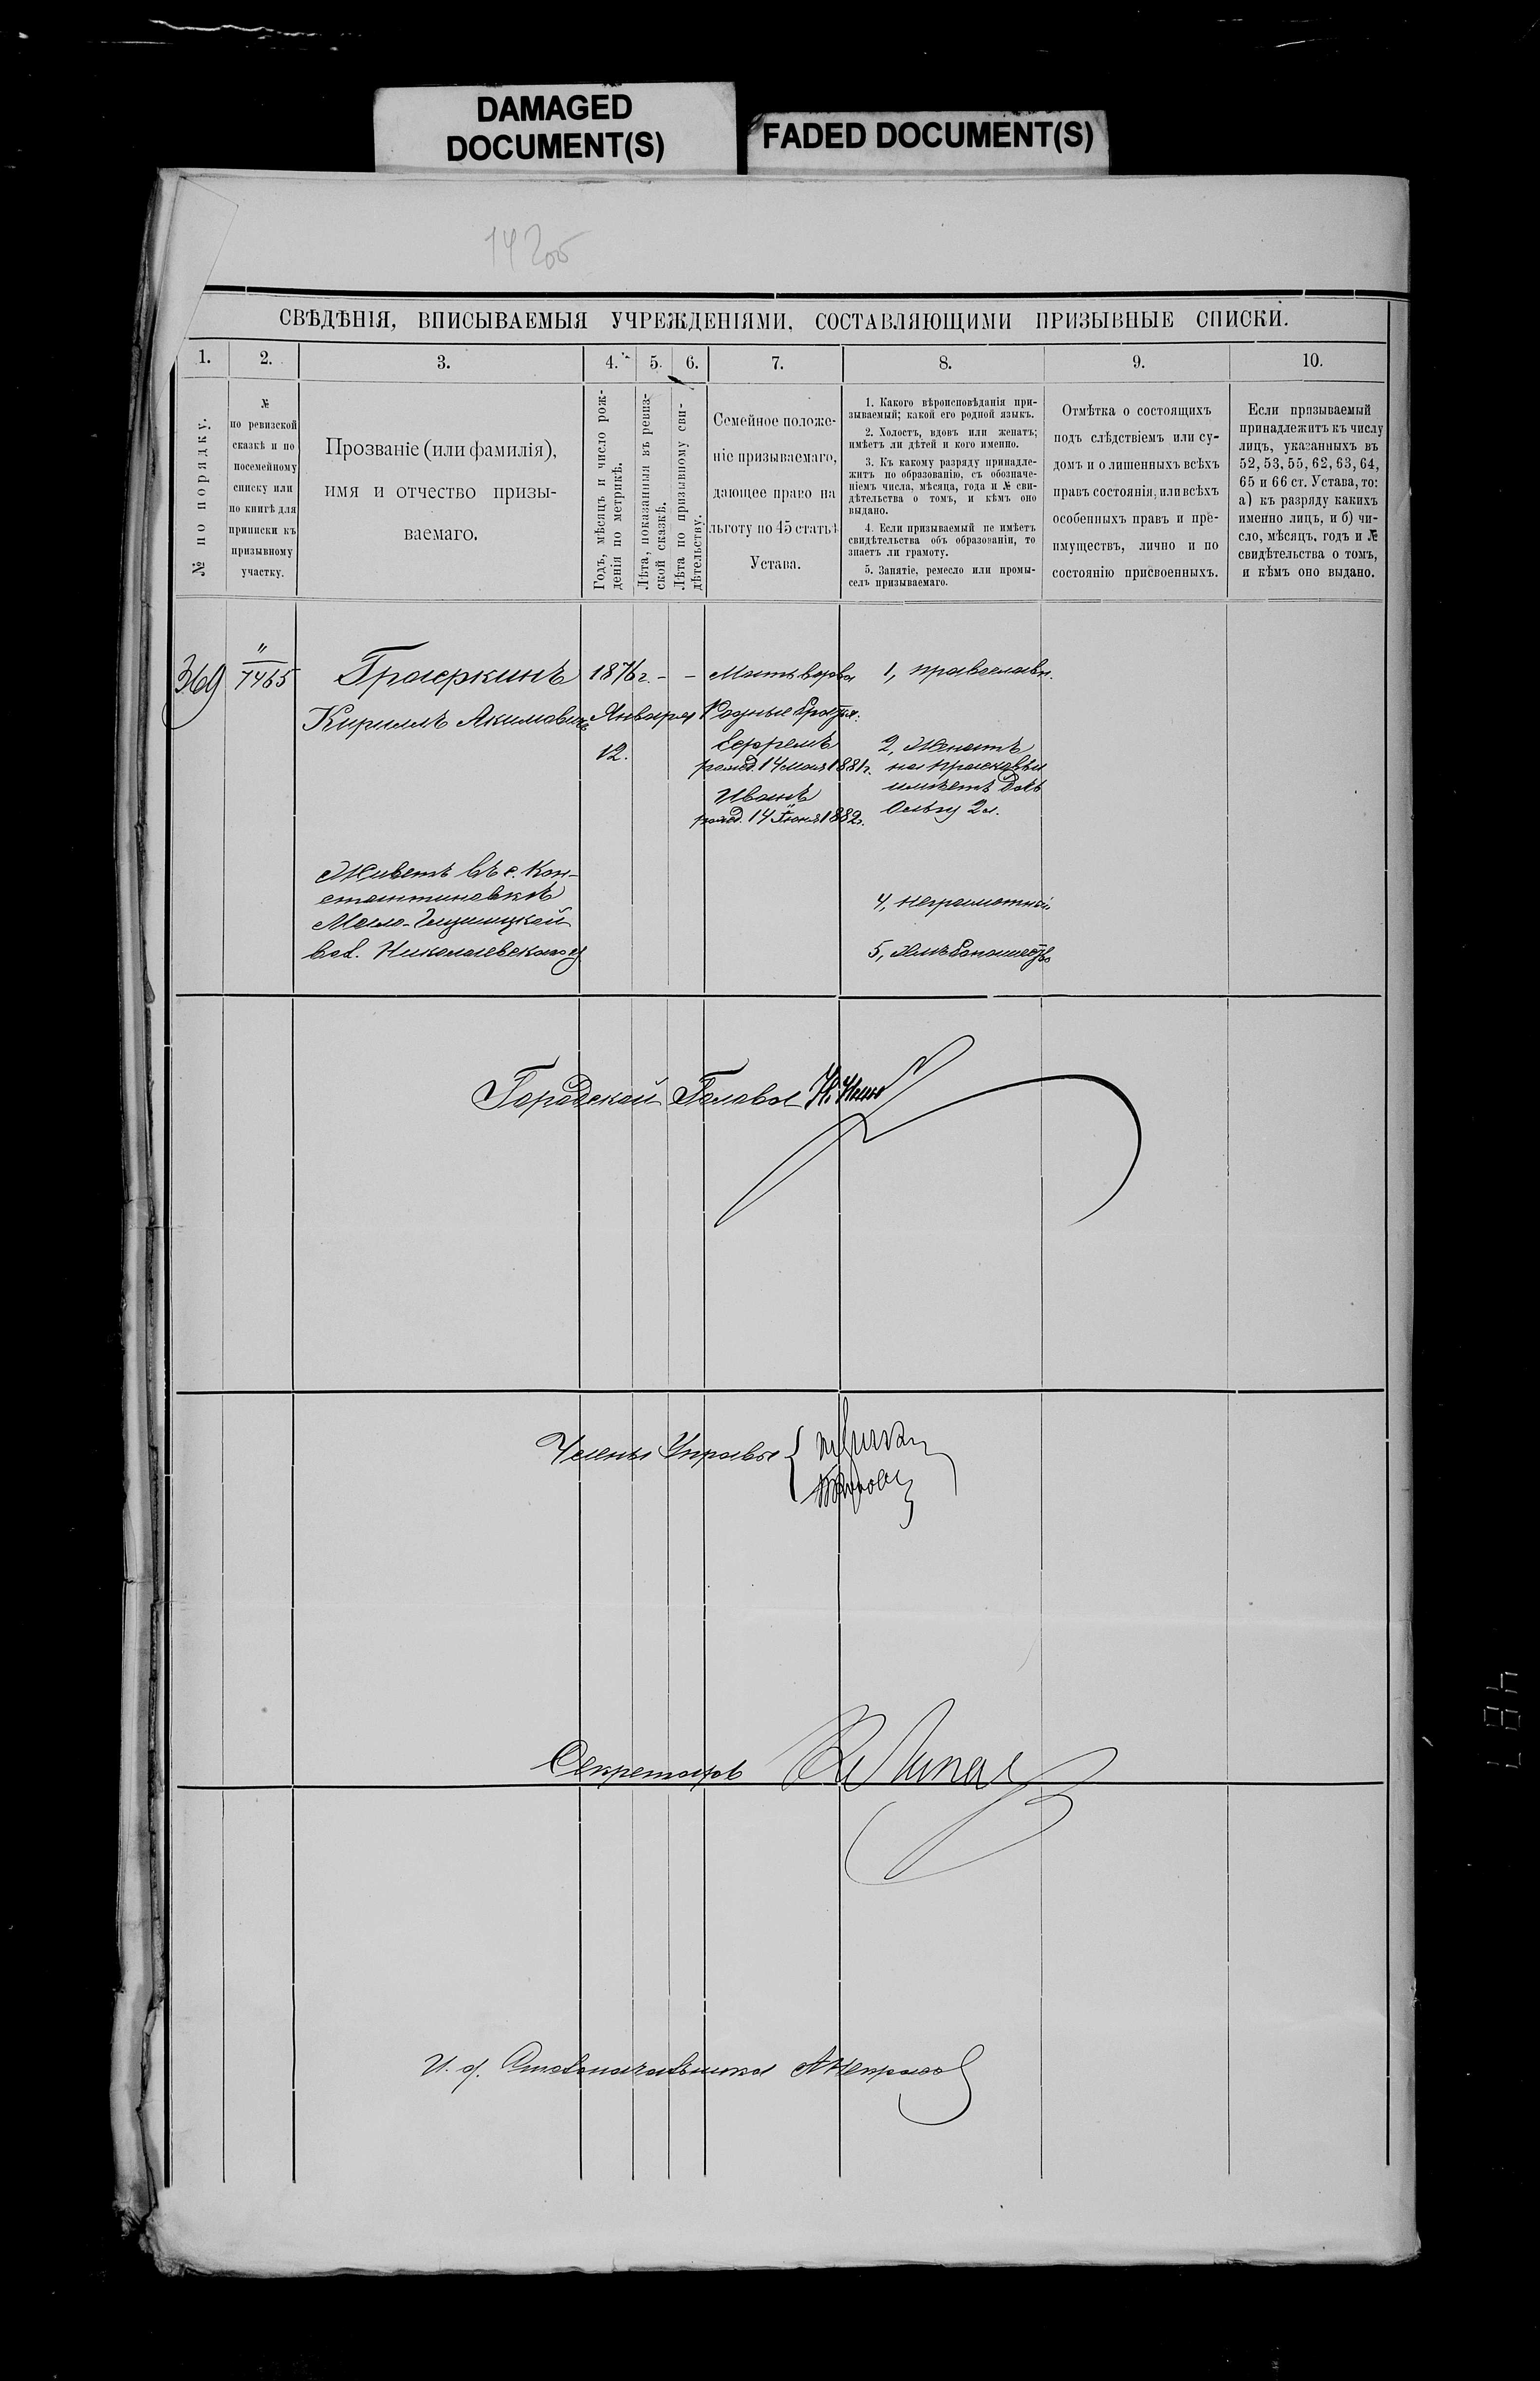 DAMAGED
DOCUMENT(S)
FADED DOCUMENT(S)
СВѢДѢНІЯ, ВПИСЫВАЕМЫЯ УЧРЕЖДЕНІЯМИ, СОСТАВЛЯЮЩИМИ ПРИЗЫВНЫЕ СПИСКИ.
1. 2. 3. 4. 5. 6. 7. 8. 9. 10.
№ по порядку.
№
по ревизской
сказкѣ и по
посемейному
списку или
по книгѣ для
приписки къ
призывному
участку.
Прозваніе (или фамилія),
имя и отчество призы-
ваемаго.
Годъ, мѣсяцъ и число рож-
денія по метрикѣ.
Лѣта, показанныя въ ревиз-
ской сказкѣ.
Лѣта по призывному сви-
дѣтельству.
Семейное положе-
ніе призываемаго,
дающее право на
льготу по 45 статьѣ
Устава.
1. Какого вѣроисповѣданія при-
зываемый; какой его родной языкъ.
2. Холостъ, вдовъ или женатъ;
имѣетъ ли дѣтей и кого именно.
3. Къ какому разряду принадле-
житъ по образованію, съ обозначе-
ніемъ числа, мѣсяца, года и № сви-
дѣтельства о томъ, и кѣмъ оно
выдано.
4. Если призываемый не имѣетъ
свидѣтельства объ образованіи, то
знаетъ ли грамоту.
5. Занятіе, ремесло или промы-
селъ призываемаго.
Отмѣтка о состоящихъ
подъ слѣдствіемъ или су-
домъ и о лишенныхъ всѣхъ
правъ состоянія, или всѣхъ
особенныхъ правъ и пре-
имуществъ, лично и по
состоянію присвоенныхъ.
Если призываемый
принадлежитъ къ числу
лицъ, указанныхъ въ
52, 53, 55, 62, 63, 64,
65 и 66 ст. Устава, то:
а) къ разряду какихъ
именно лицъ, и б) чи-
сло, мѣсяцъ, годъ и №
свидѣтельства о томъ,
и кѣмъ оно выдано.
369
"
7465
Кириллъ Акимовичъ
Живетъ въ с. Кон-
стантиновкѣ
вол. Николаевского у
1876 г. - -
Января
12.
Мать вдова
Родные братья:
Ефремъ
рожд. 14 мая 1881 г.
Иванъ
рожд. 14 Іюня 1882 г.
1, православн.
2, Женатъ
на Прасковьи
имѣетъ дочь
Ольгу 2 л.
4, неграмотный
5, Хлѣбопашество
Городской Голова
Члены Управы
Секретарь
И. д. Столоначальника А Некрасов
487